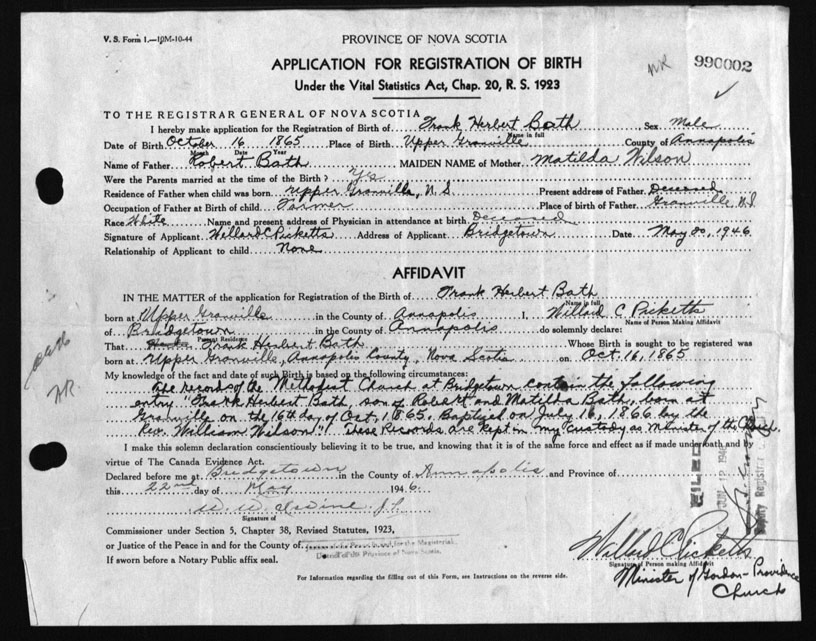 V. S. Form 1.—10M-10-44
PROVINCE OF NOVA SCOTIA
APPLICATION FOR REGISTRATION OF BIRTH
NR
990002
Under the Vital Statistics Act, Chap. 20, R. S. 1923
TO THE REGISTRAR GENERAL OF NOVA SCOTIA
I hereby make application for the Registration of Birth of Frank Herbert Bath Sex Male
Name in full
Date of Birth October 16 1865 Place of Birth Upper Granville County of Annapolis
Month Date Year
Name of Father Robert Bath MAIDEN NAME of Mother Matilda Wilson
Were the Parents married at the time of the Birth? Yes
Residence of Father when child was born Upper Granville, N.S. Present address of Father Deceased
Occupation of Father at Birth of child Farmer Place of birth of Father Granville N.S.
Race White Name and present address of Physician in attendance at birth Deceased
Signature of Applicant Willard C Picketts Address of Applicant Bridgetown Date May 1946
Relationship of Applicant to child None
AFFIDAVIT
IN THE MATTER of the application for Registration of the Birth of Frank Herbert Bath
Name in full
born at Upper Granville in the County of Annapolis I, Willard C. Picketts
Name of Person Making Affidavit
of Bridgetown in the County of Annapolis do solemnly declare:
Present Residence
That Frank Herbert Bath Whose Birth is sought to be registered was
born at Upper Granville, Annapolis County, Nova Scotia on Oct. 16, 1865
My knowledge of the fact and date of such Birth is based on the following circumstances:
The records of the Methodist Church at Bridgetown contain the following
entry "Frank Herbert Bath, son of Robert and Matilda Bath, born at
Granville on the 16th day of Oct, 1865. Baptised on July 16, 1866 by the
Rev. William Wilson". These Records are kept in my custody as Minister of the Church.
I make this solemn declaration conscientiously believing it to be true, and knowing that it is of the same force and effect as if made under oath and by
virtue of The Canada Evidence Act.
Declared before me at Bridgetown in the County of Annapolis and Province of
this 22nd day of May 1946
Signature of
Commissioner under Section 5, Chapter 38, Revised Statutes, 1923,
or Justice of the Peace in and for the County of
If sworn before a Notary Public affix seal.
FILED
JUN 12 1946
Deputy Registrar
Willard C Picketts
Signature of Person making Affidavit
Minister of Gordon-Providence
Church
For Information regarding the filling out of this Form, see Instructions on the reverse side.
NR.